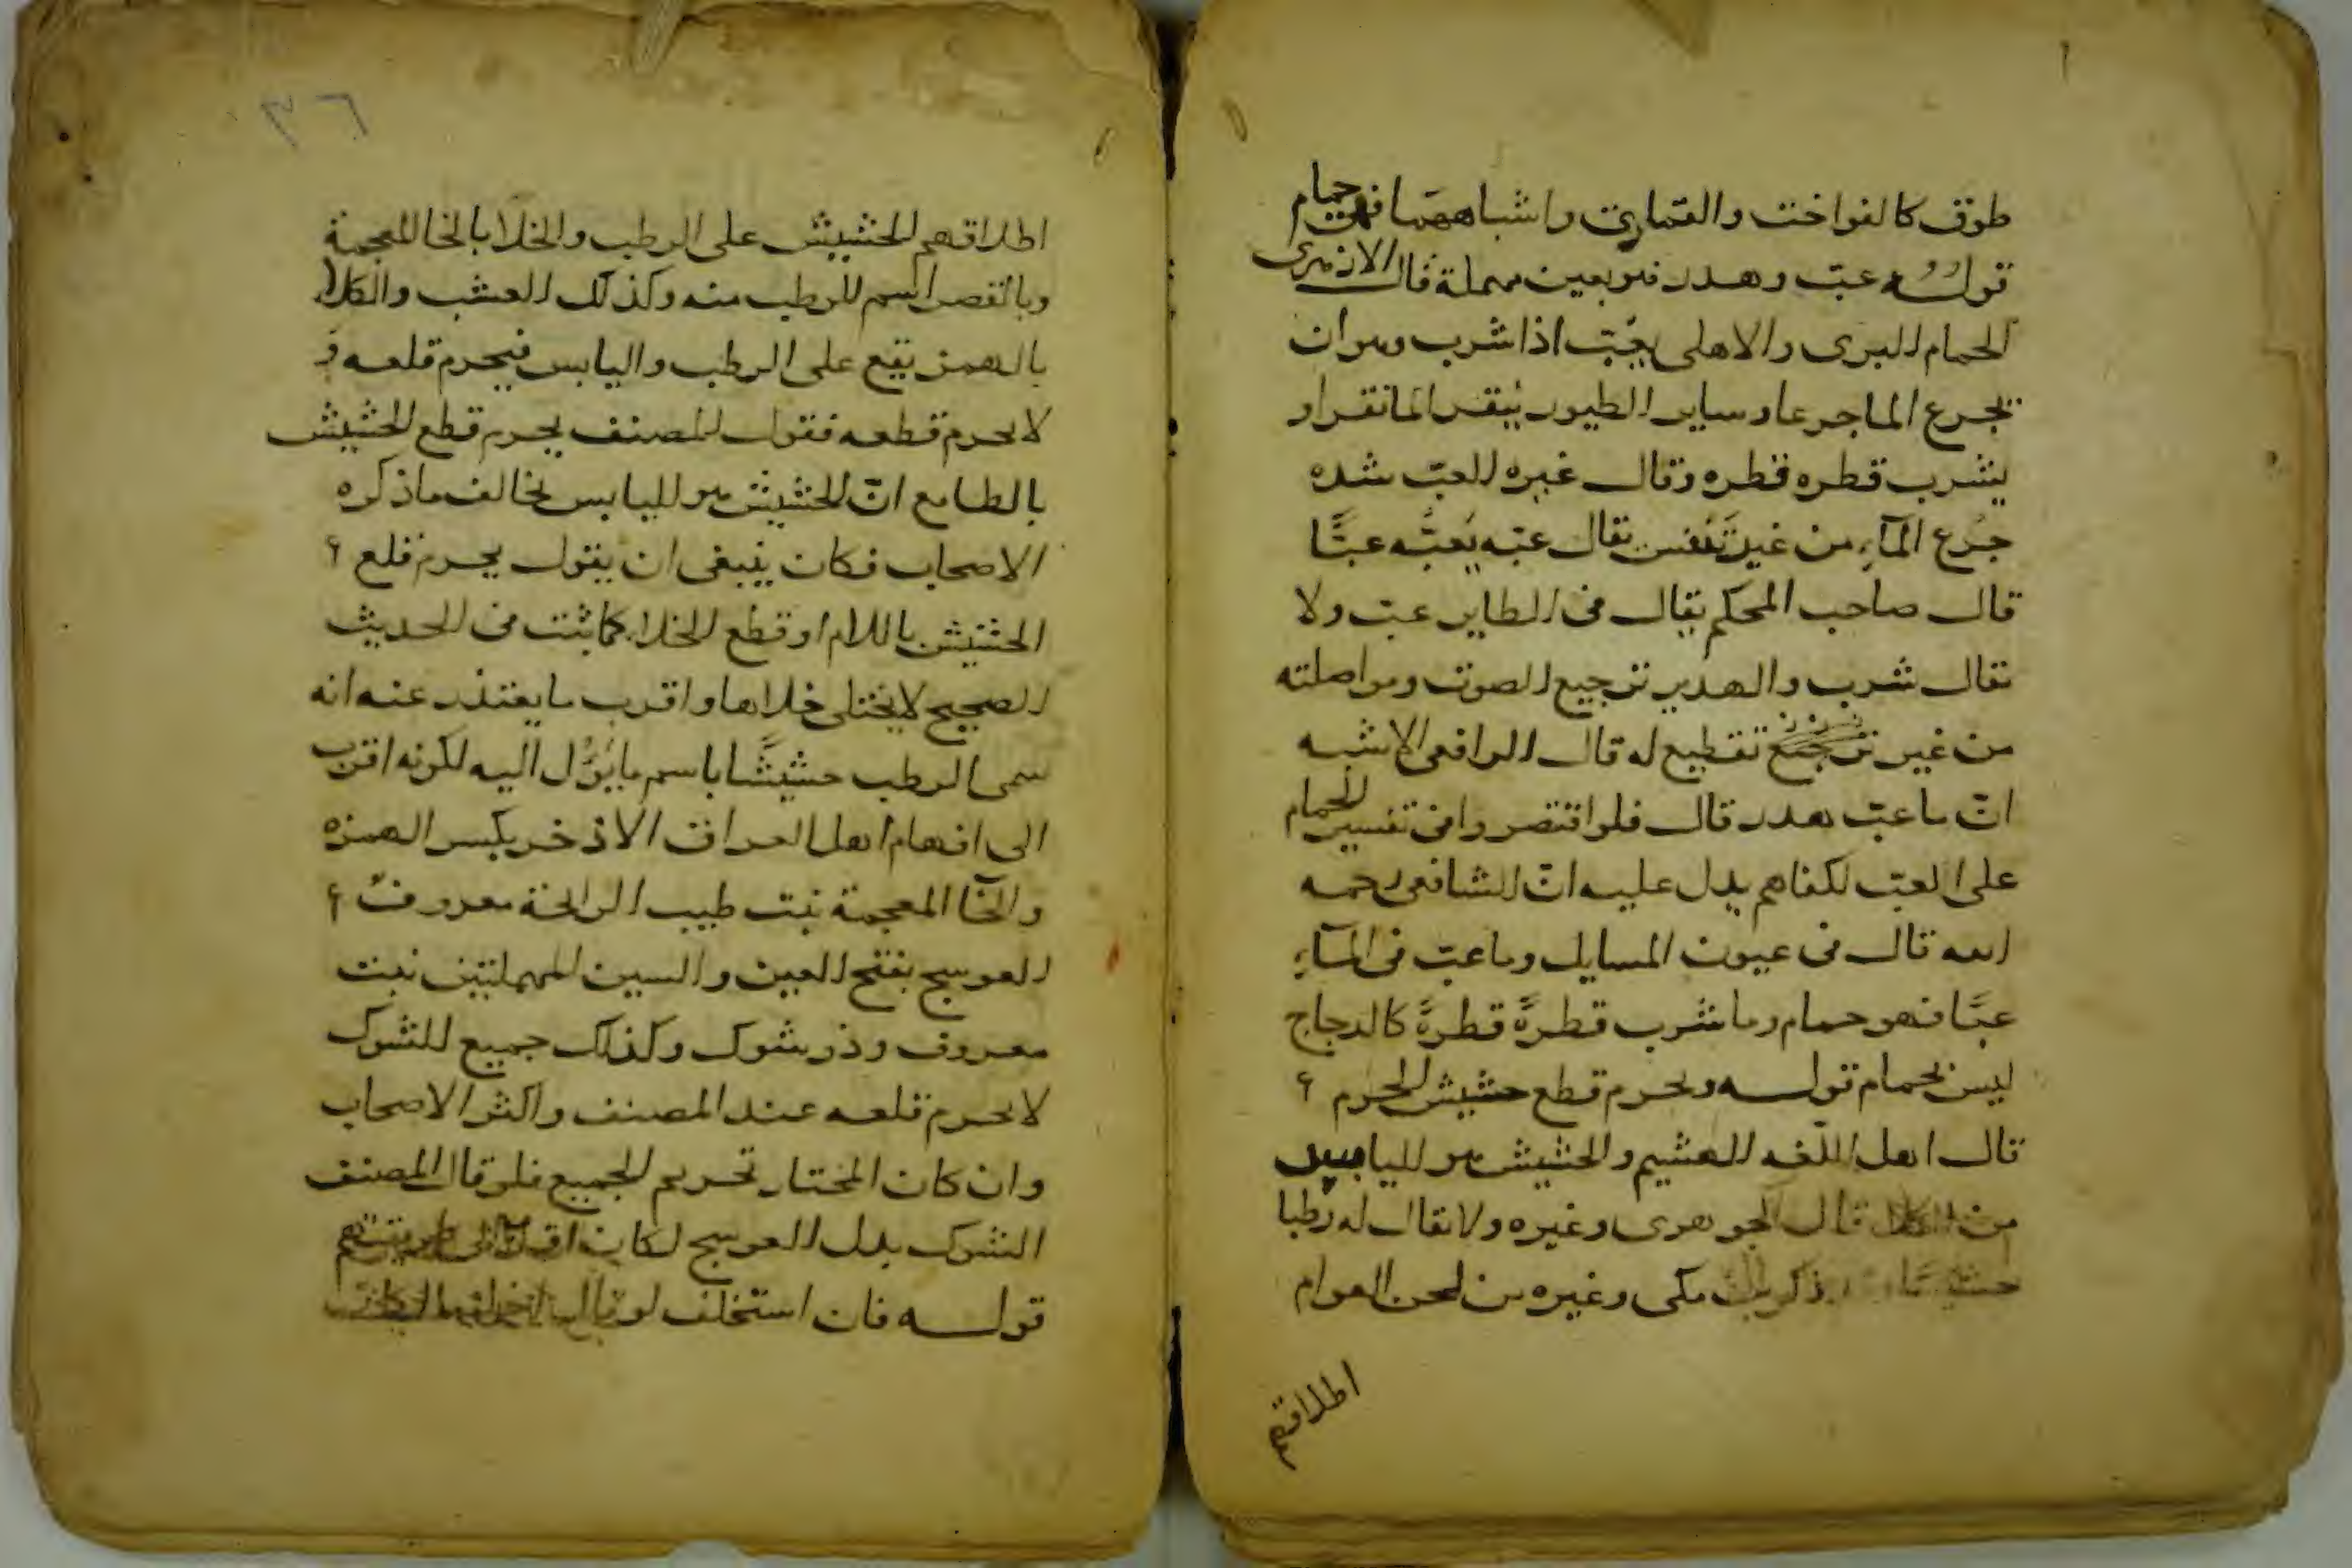 طوق كالفواخت والقماري واشباههما فهي حمام
قوله عبّ وهدر فهو بعين مهملة قال الازهرى
الحمام البرى والاهلى يعُبّ اذا شرب وهو ان
يجرع الما جرعا وساير الطيور ينقر الما نقرا و
يشرب قطره قطره وقال غيره العبّ شده
جرع المآء من غير تنفس يقال عبّه يعبّه عبًّا
قال صاحب المحكم يقال فى الطاير عبّ ولا
يقال شرب والهدير ترجيع الصوت ومواصلته
من غير تقطيع له قال الرافعى الاشبه
انّ ما عبّ هدر قال فلو اقتصروا فى تفسير الحمام
على العبّ لكفاهم يدل عليه انّ الشافعى رحمه
الله قال فى عيون المسايل وما عبّ فى المآء
عبًّا فهو حمام وما شرب قطرةً قطرةً كالدجاج
ليس بحمام قوله ويحرم قطع حشيش الحرم
قال اهل اللغه الهشيم والحشيش هو اليابس
من الكلا قال الجوهرى وغيره ولا يقال له رطبا
حشيشا ذكر مكى وغيره من لحن العوام
اطلاقهم
٣٦
اطلاقهم الحشيش على الرطب والخلا بالخا المعجمة
وبالقصر اسم للرطب منه وكذلك العشب والكلا
بالهمز يقع على الرطب واليابس فيحرم قلعه و
لا يحرم قطعه فقول المصنف يحرم قطع الحشيش
بالطا مع انّ الحشيش هو اليابس يخالف ما ذكره
الاصحاب فكان ينبغى ان يقول يحرم قلع
الحشيش باللام او قطع الخلا كما ثبت فى الحديث
الصحيح لا يختلى خلاها واقرب ما يعتذر عنه انه
سمى الرطب حشيشًا باسم ما يؤُل اليه لكونه اقرب
الى افهام اهل العراق الاذخر بكسر الهمزه
والخا المعجمة نبت طيب الرائحة معروف
العوسج بفتح العين والسين المهملتين نبت
معروف وذو شوك وكذلك جميع الشوك
لا يحرم قلعه عند المصنف واكثر الاصحاب
وان كان المختار تحريم الجميع فلو قال المصنف
الشوك بدل العوسج لكان اقرب الى طريقتهم
قوله فان استخلف لو قال